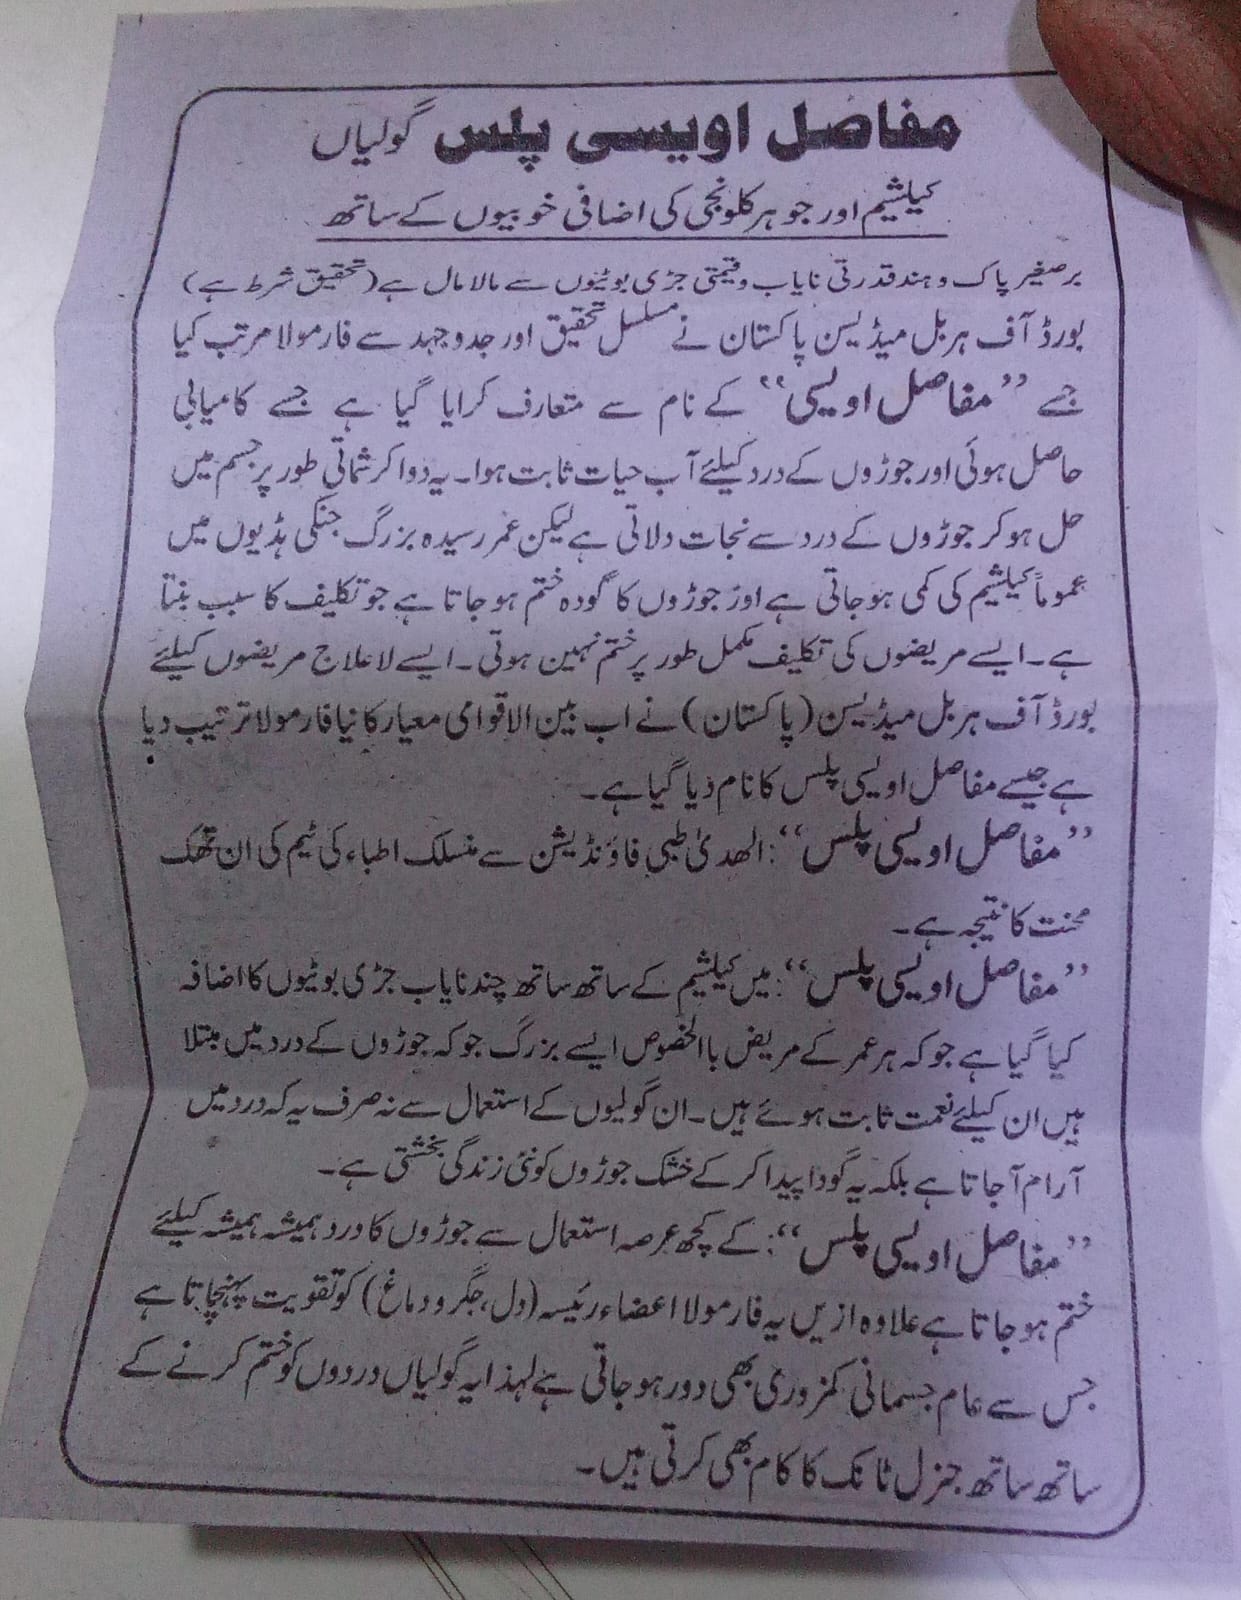 مفاصل اویسی پلس گولیاں
کیلشیم اور جوہر کلونجی کی اضافی خوبیوں کے ساتھ
برصغیر پاک و ہند قدرتی نایاب و قیمتی جڑی بوٹیوں سے مالا مال ہے (تحقیق شرط ہے)
بورڈ آف ہربل میڈیسن پاکستان نے مسلسل تحقیق اور جدوجہد سے فارمولا مرتب کیا
جسے ”مفاصل اویسی“ کے نام سے متعارف کرایا گیا ہے جسے کامیابی
حاصل ہوئی اور جوڑوں کے درد کیلئے آب حیات ثابت ہوا۔ یہ دوا کرشماتی طور پر جسم میں
حل ہو کر جوڑوں کے درد سے نجات دلاتی ہے لیکن عمر رسیدہ بزرگ جنکی ہڈیوں میں
عموماً کیلشیم کی کمی ہو جاتی ہے اور جوڑوں کا گودہ ختم ہو جاتا ہے جو تکلیف کا سبب بنتا
ہے۔ ایسے مریضوں کی تکلیف مکمل طور پر ختم نہیں ہوتی۔ ایسے لاعلاج مریضوں کیلئے
بورڈ آف ہربل میڈیسن (پاکستان) نے اب بین الاقوامی معیار کا نیا فارمولا ترتیب دیا
ہے جسے مفاصل اویسی پلس کا نام دیا گیا ہے۔
”مفاصل اویسی پلس“: الھدیٰ طبی فاؤنڈیشن سے منسلک اطباء کی ٹیم کی ان تھک
محنت کا نتیجہ ہے۔
”مفاصل اویسی پلس“: میں کیلشیم کے ساتھ ساتھ چند نایاب جڑی بوٹیوں کا اضافہ
کیا گیا ہے جو کہ ہر عمر کے مریض باالخصوص ایسے بزرگ جو کہ جوڑوں کے درد میں مبتلا
ہیں ان کیلئے نعمت ثابت ہوئے ہیں۔ ان گولیوں کے استعمال سے نہ صرف یہ کہ درد میں
آرام آ جاتا ہے بلکہ یہ گودا پیدا کر کے خشک جوڑوں کو نئی زندگی بخشتی ہے۔
”مفاصل اویسی پلس“: کے کچھ عرصہ استعمال سے جوڑوں کا درد ہمیشہ ہمیشہ کیلئے
ختم ہو جاتا ہے علاوہ ازیں یہ فارمولا اعضاء رئیسہ (دل، جگر و دماغ) کو تقویت پہنچاتا ہے
جس سے عام جسمانی کمزوری بھی دور ہو جاتی ہے لہذا یہ گولیاں دردوں کو ختم کرنے کے
ساتھ ساتھ جنرل ٹانک کا کام بھی کرتی ہیں۔